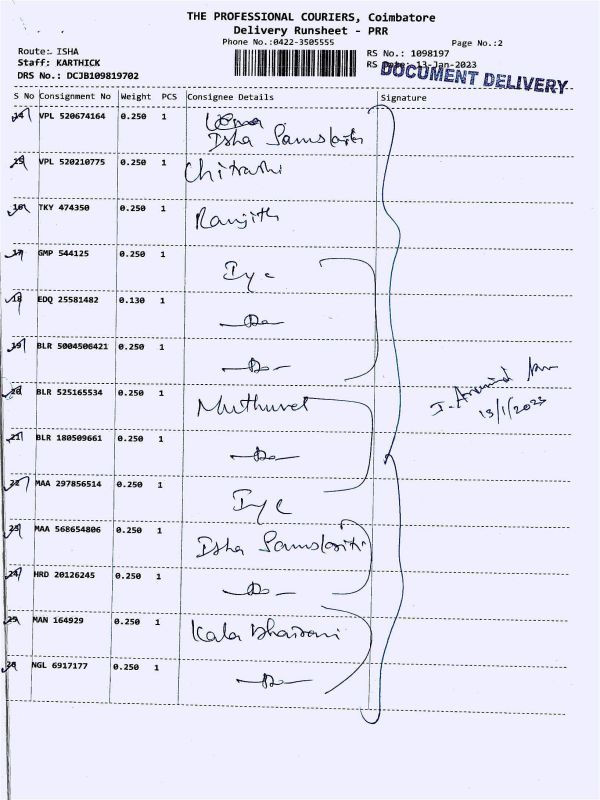 THE PROFESSIONAL COURIERS, Coimbatore
Delivery Runsheet - PRR
Phone No.:0422-3505555
Page No.:2
Route:- ISHA
RS No.: 1098197
Staff: KARTHICK
RS Date: 13-Jan-2023
DRS No.: DCJB109819702
DOCUMENT DELIVERY
S No Consignment No Weight PCS Consignee Details Signature
14 VPL 520674164 0.250 1
Isha Samskriti
15 VPL 520210775 0.250 1 Chitrashi
16 TKY 474350 0.250 1 Ranjith
17 GMP 544125 0.250 1 Iyc
18 EDQ 25581482 0.130 1 —Do—
19 BLR 5004506421 0.250 1 —Do—
20 BLR 525165534 0.250 1 Muthuvel
13/1/2023
21 BLR 180509661 0.250 1 —Do—
22 MAA 297856514 0.250 1 Iyc
23 MAA 568654806 0.250 1 Isha Samskriti
24 HRD 20126245 0.250 1 —Do—
25 MAN 164929 0.250 1 Kala Bhairavi
26 NGL 6917177 0.250 1 —Do—